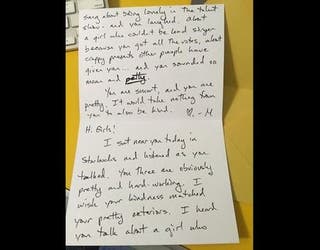 sang about being lonely in the talent
show - and you laughed. About
a girl who couldn't be lead singer
because you got all the votes, about
crappy presents other people have
given you... and you sounded so
mean and petty
You are smart, and you are
pretty. It would take nothing from
you to also be kind. ♡, -M
Hi Girls!
I sat near you today in
Starbucks and listened as you
talked. You three are obviously
pretty and hard-working. I
wish your kindness matched
your pretty exteriors. I heard
you talk about a girl who